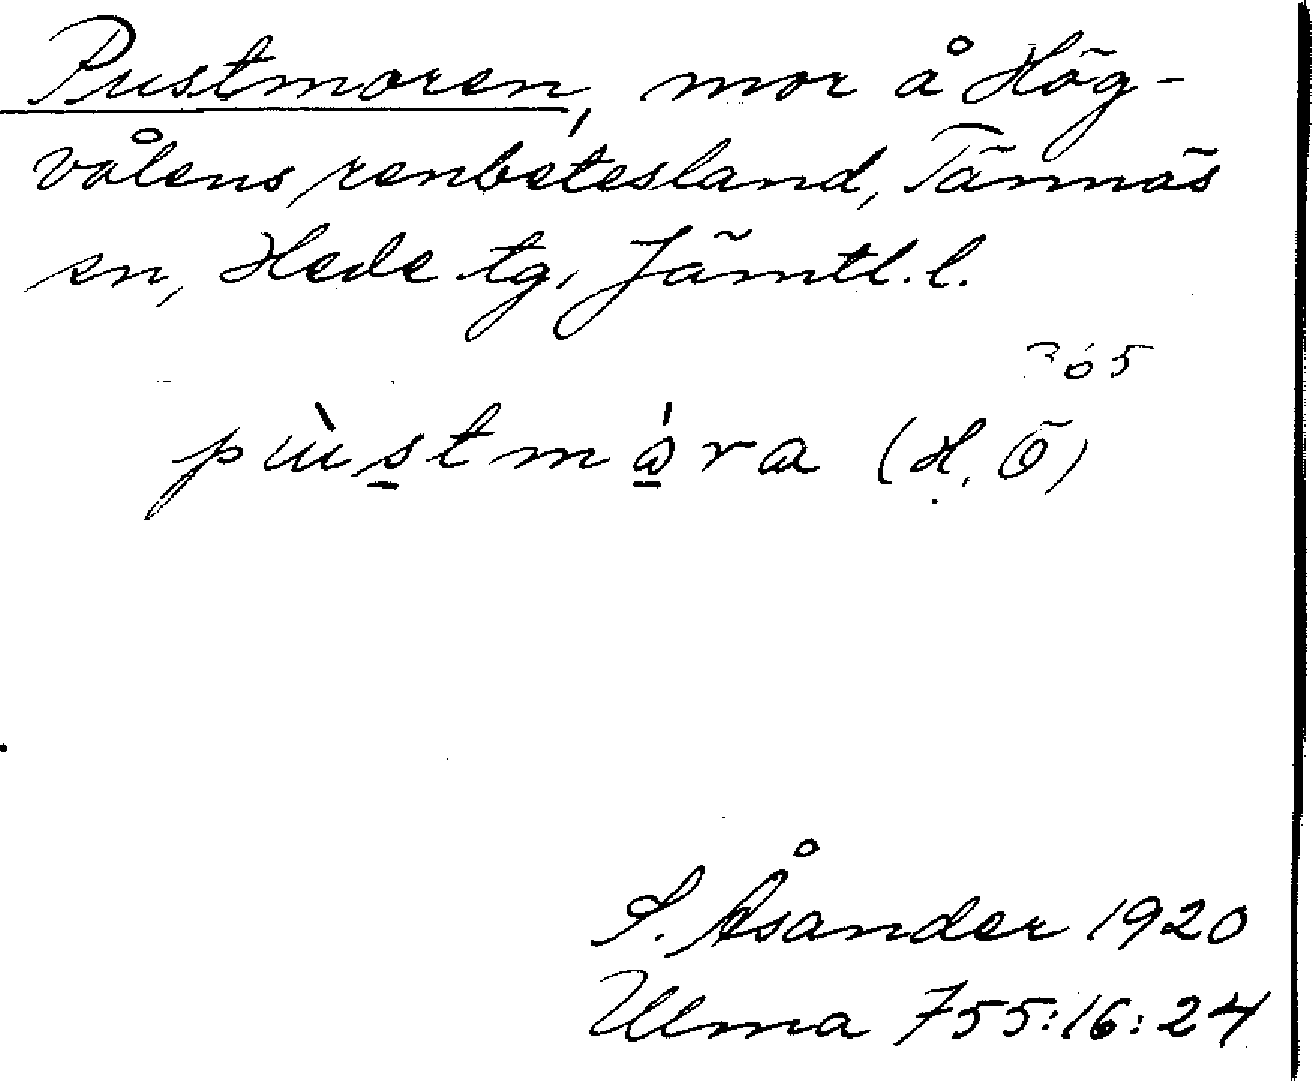 Pustmoren, mor å Hög-
vålens renbetesland, Tännäs
sn, Hede tg, Jämtl. l.
pùstmåra (H. Ö)
S. Åsander 1920
Ulma 755:16:24